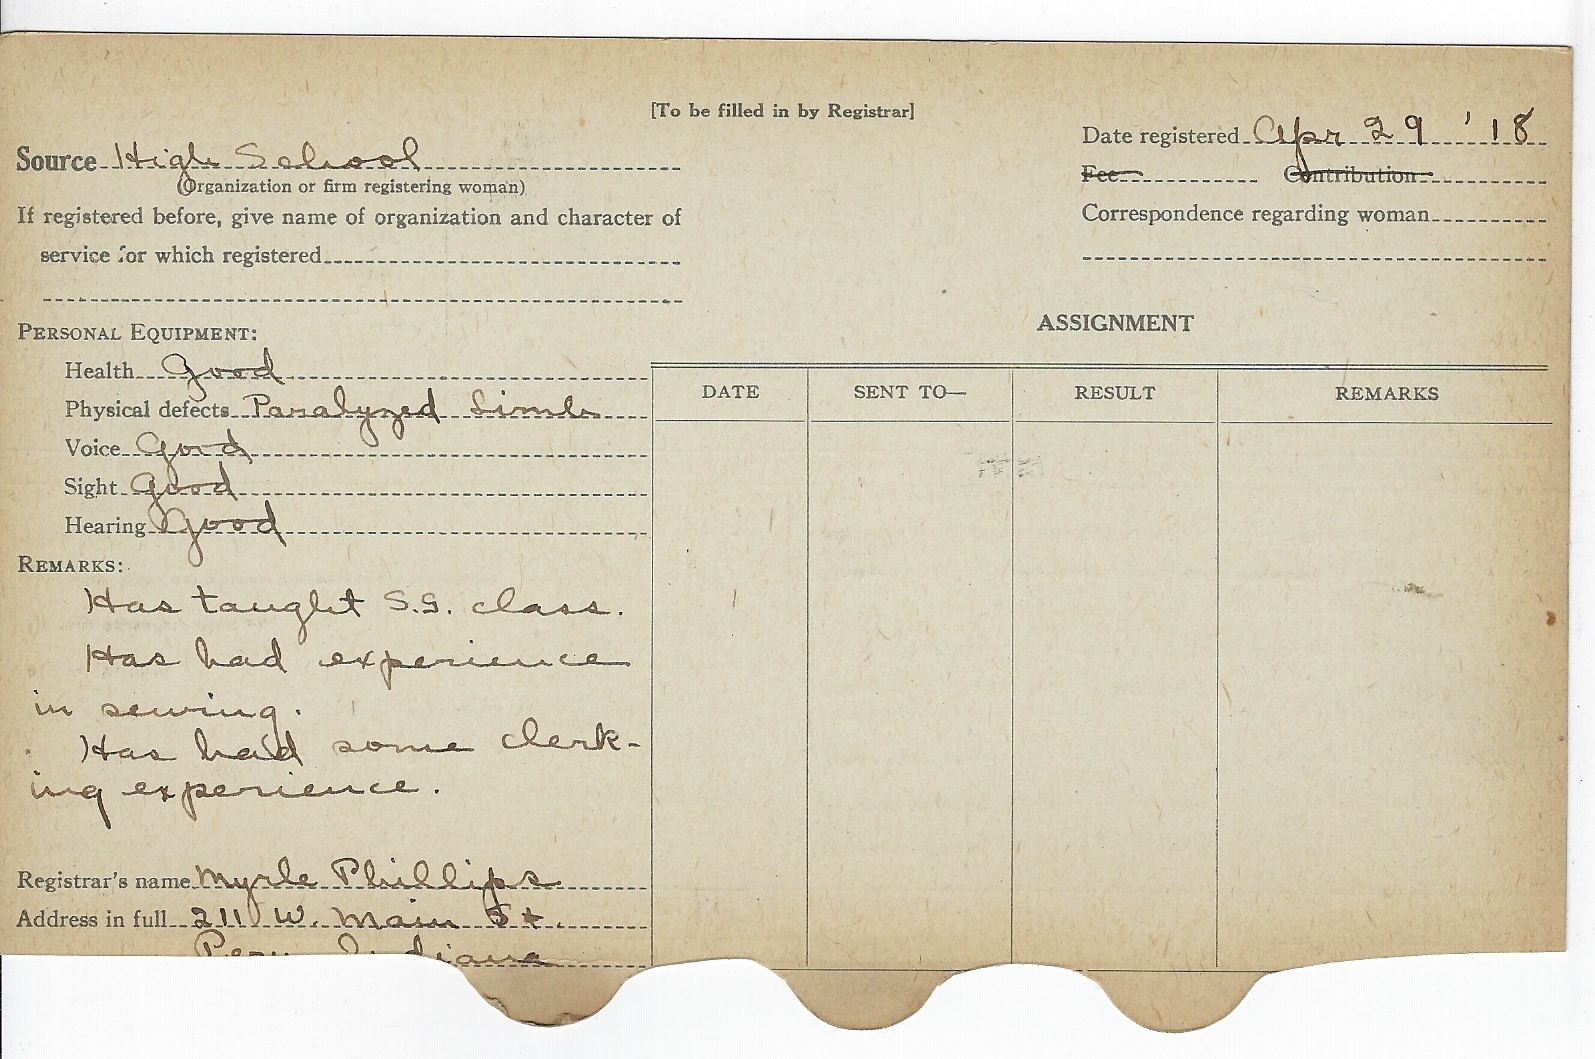 [To be filled in by Registrar]
Date registered Apr 29 '18
Source High School
(Organization or firm registering woman)
Fee Contribution
If registered before, give name of organization and character of
service for which registered
Correspondence regarding woman
PERSONAL EQUIPMENT:
Health Good
Physical defects Paralyzed Limb
Voice Good
Sight Good
Hearing Good
REMARKS:
Has taught S.S. class.
Has had experience
in sewing.
Has had some clerk-
ing experience.
Registrar's name Myrle Phillips
Address in full 211 W. Main St.
Peru Indiana
ASSIGNMENT
DATE SENT TO— RESULT REMARKS